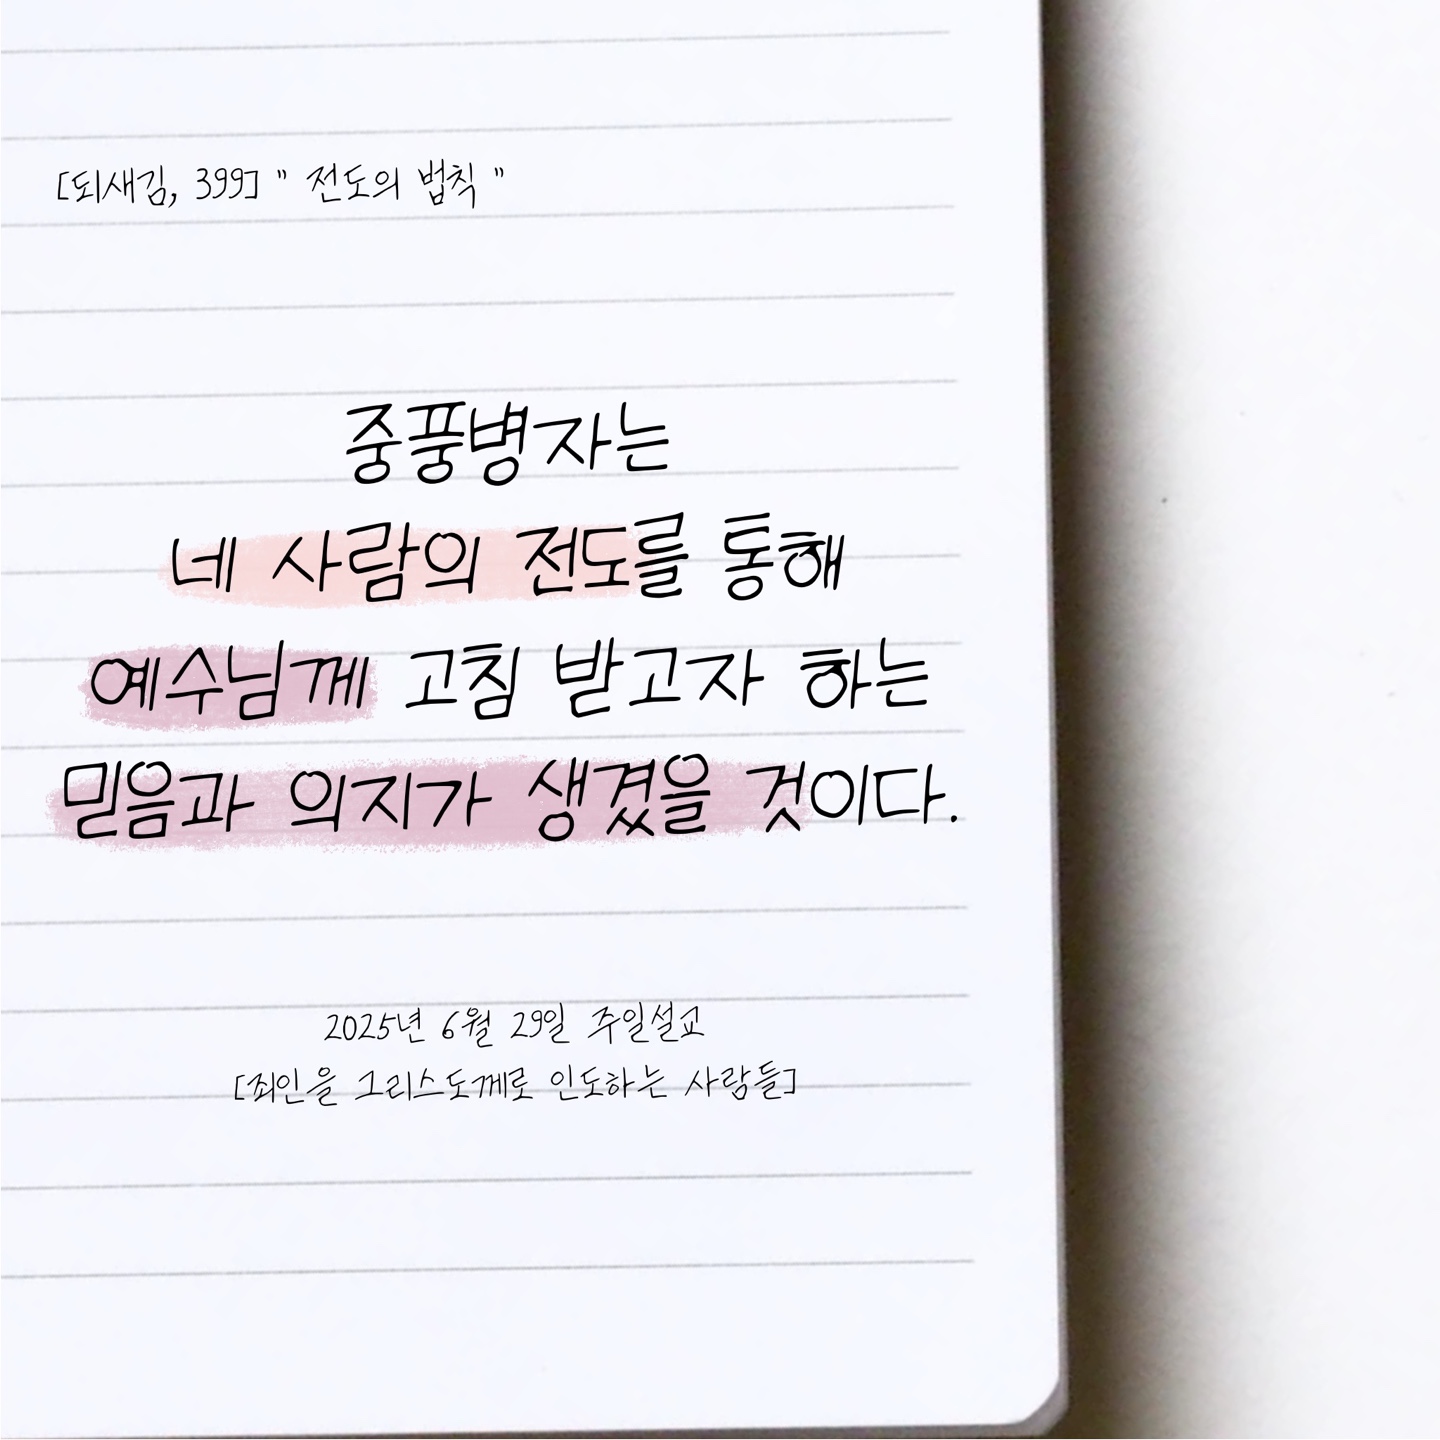 [되새김, 399] " 전도의 법칙 "
중풍병자는
네 사람의 전도를 통해
예수님께 고침 받고자 하는
믿음과 의지가 생겼을 것이다.
2025년 6월 29일 주일설교
[죄인을 그리스도께로 인도하는 사람들]